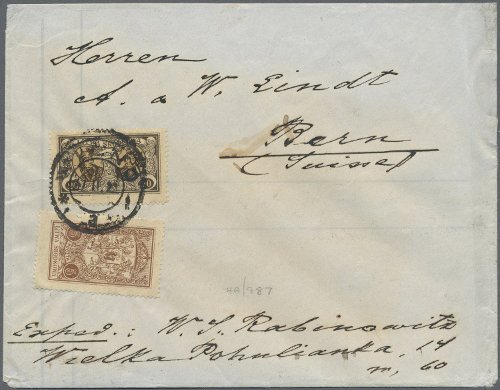 Herren
A. a W. Eindt
Bern
(Suisse)
HA/787
Exped.: W. S. Rabinowitz
Wielka Pohulianka, 14
m, 60